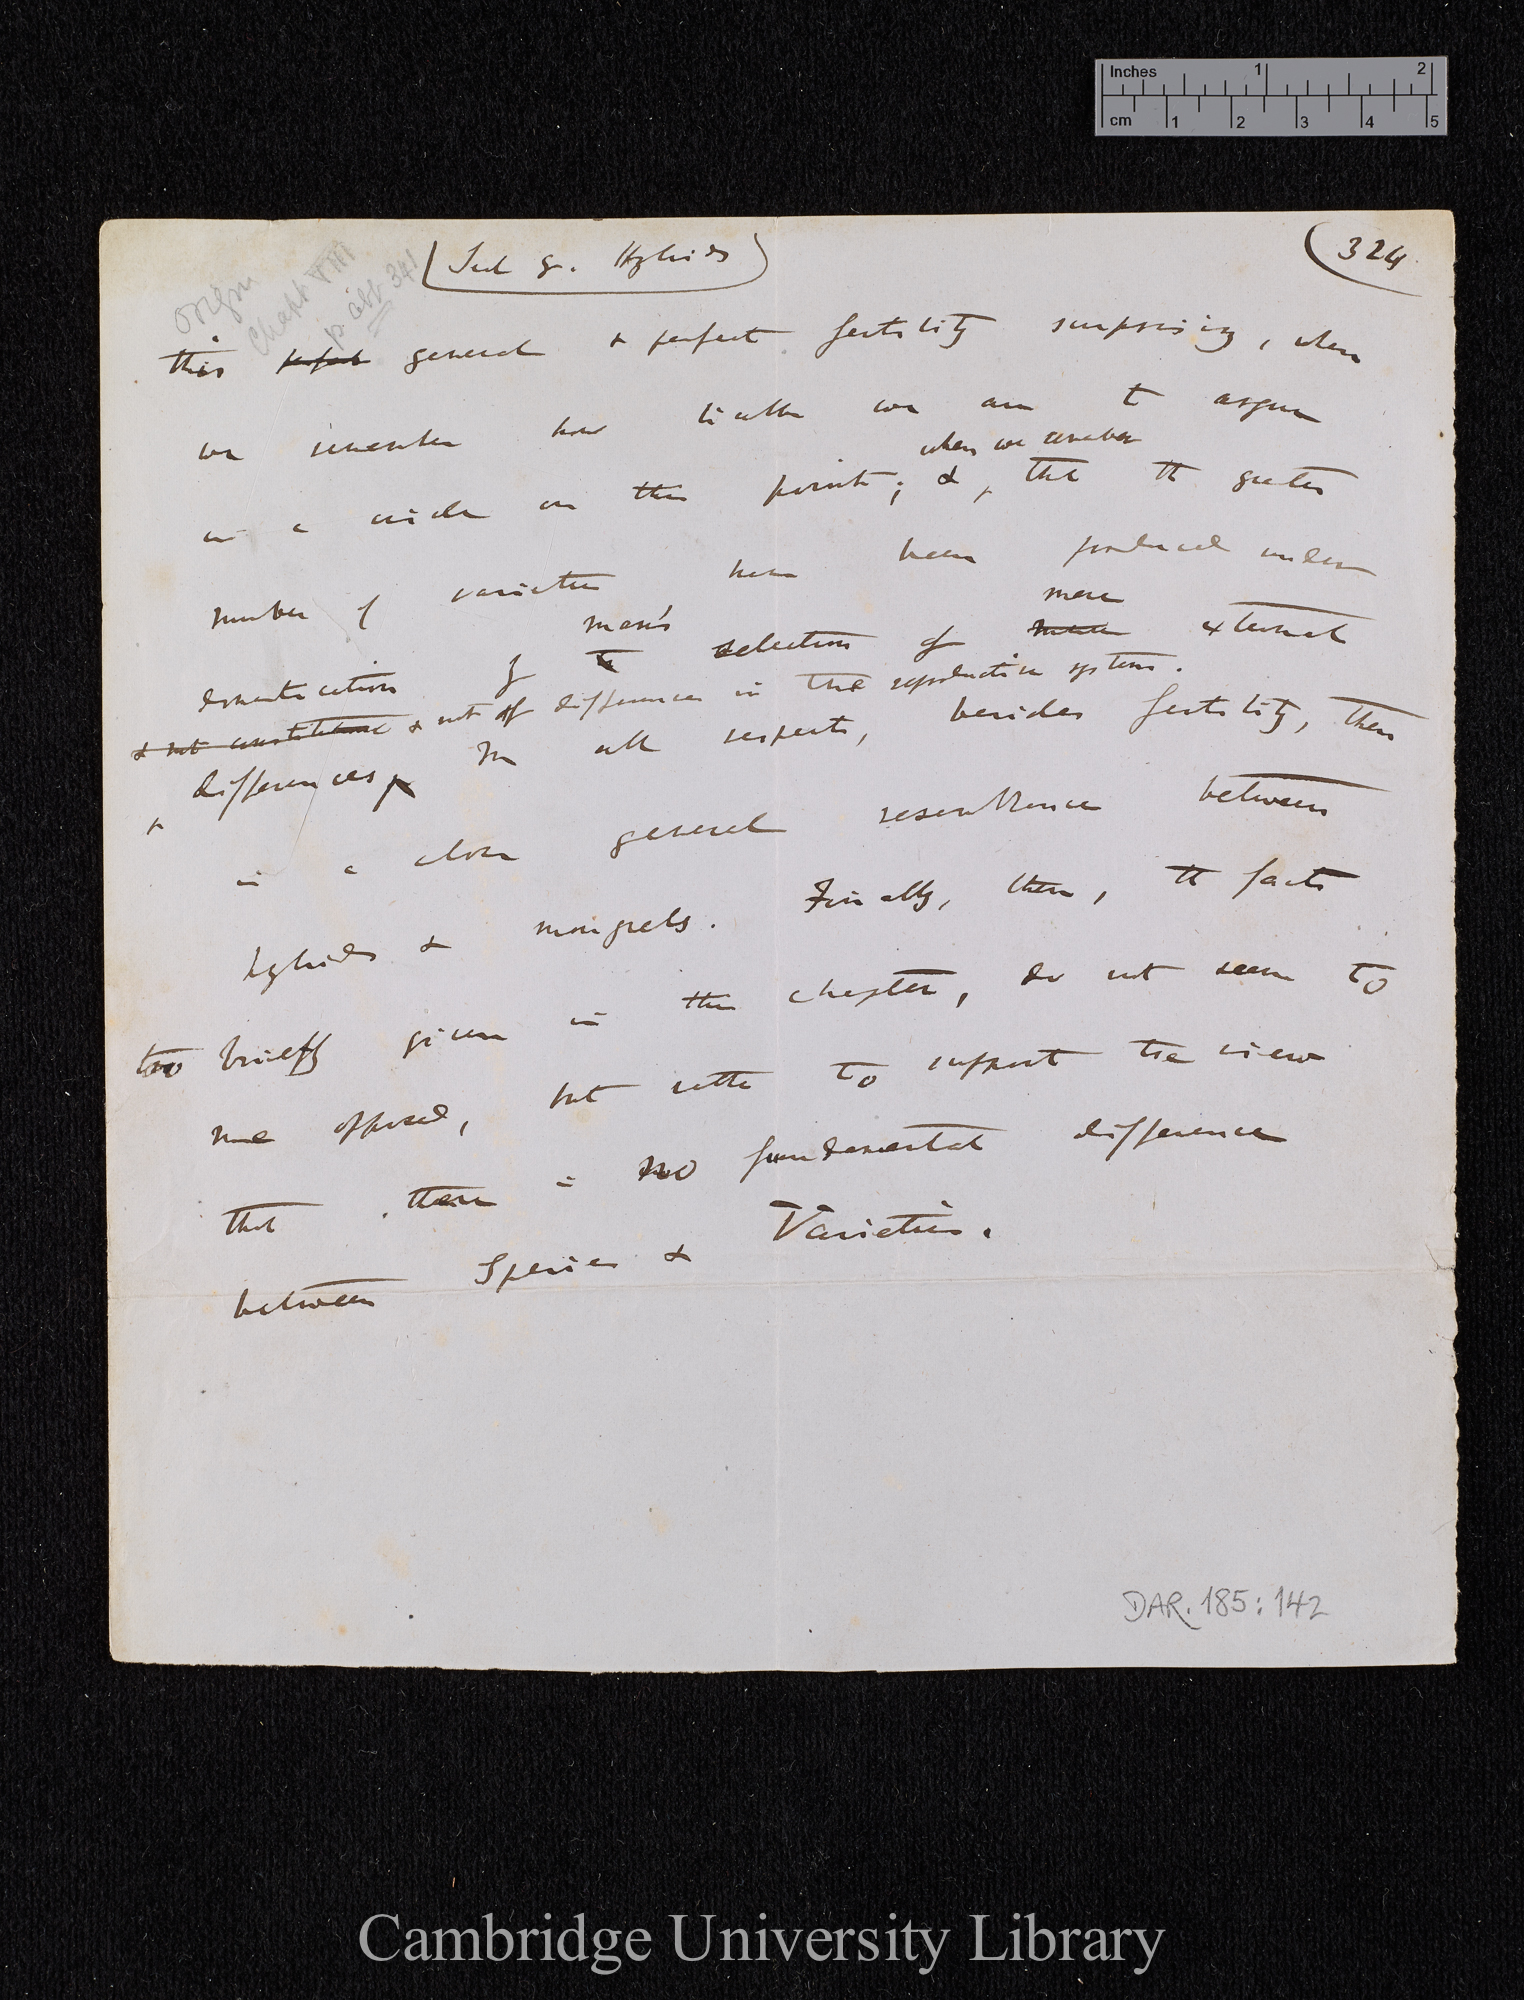 Inches 1 2
cm 1 2 3 4 5
(Sect 9. Hybrids)
(324
Origin
Chapt VIII
p 341
this perfect general & perfect fertility surprising, when
we remember how liable we are to argue
when we remember
in a circle on this point; & that the greater
number of varieties have been produced under
man's
mere
domestication by the selection of mere external
& not constitutional & not of differences in the reproductive system.
differences, In all respects, besides fertility, there
is a close general resemblance between
hybrids & mongrels. Finally, then, the facts
too briefly given in this chapter, do not seem to
me opposed, but rather to support the view
that there is no fundamental difference
between Species & Varieties.
DAR. 185:142
Cambridge University Library